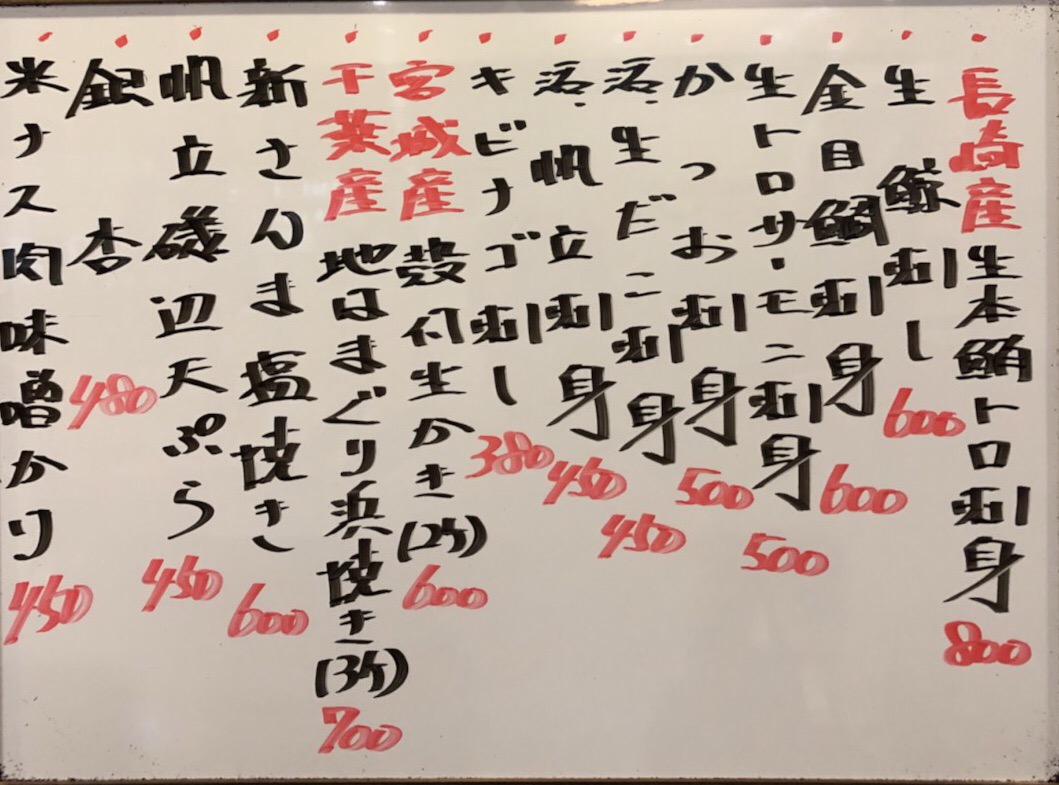 長崎産生本鮪トロ刺身 800
生鯨刺し 600
金目鯛刺身 600
生トロサーモン刺身 500
かつお刺身 500
活生だこ刺身 450
活帆立刺身 450
キビナゴ刺し 380
宮城産殻付生かき(2ケ) 600
千葉産地はまぐり浜焼き(3ケ) 700
新さんま塩焼き 600
帆立磯辺天ぷら 450
銀杏 480
米ナス肉味噌かけ 450